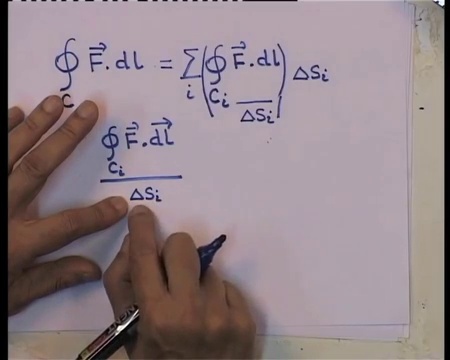 ∮_C F⃗ . dl = Σ_i ( ∮_{C_i} F⃗ . dl / ΔS_i ) ΔS_i
∮_{C_i} F⃗ . dl⃗
ΔS_i